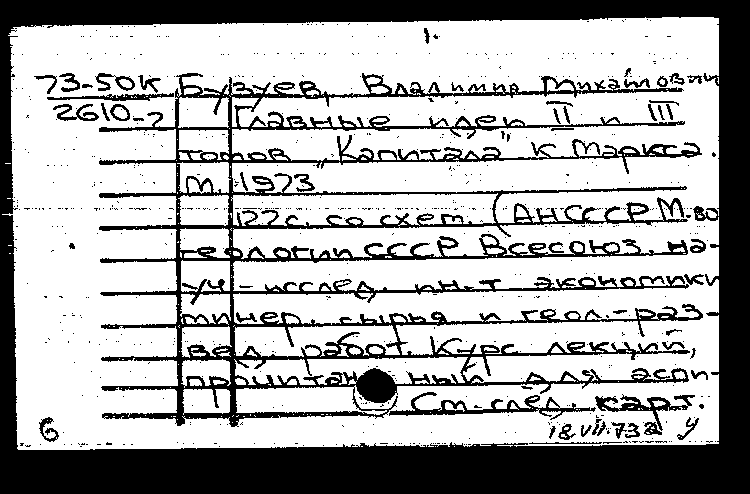 1.
73-50К Бузуев, Владимир Михайлович
2610-2 Главные идеи II и III
томов „Капитала" К Маркса.
М. 1973.
122 с. со схем. (АН СССР. М-во
геологии СССР. Всесоюз. на-
уч-исслед. ин-т экономики
минер. сырья и геол.-раз-
вед. работ. Курс лекций,
прочитанный для аспи-
См. след. карт.
6 18.VII.73г у